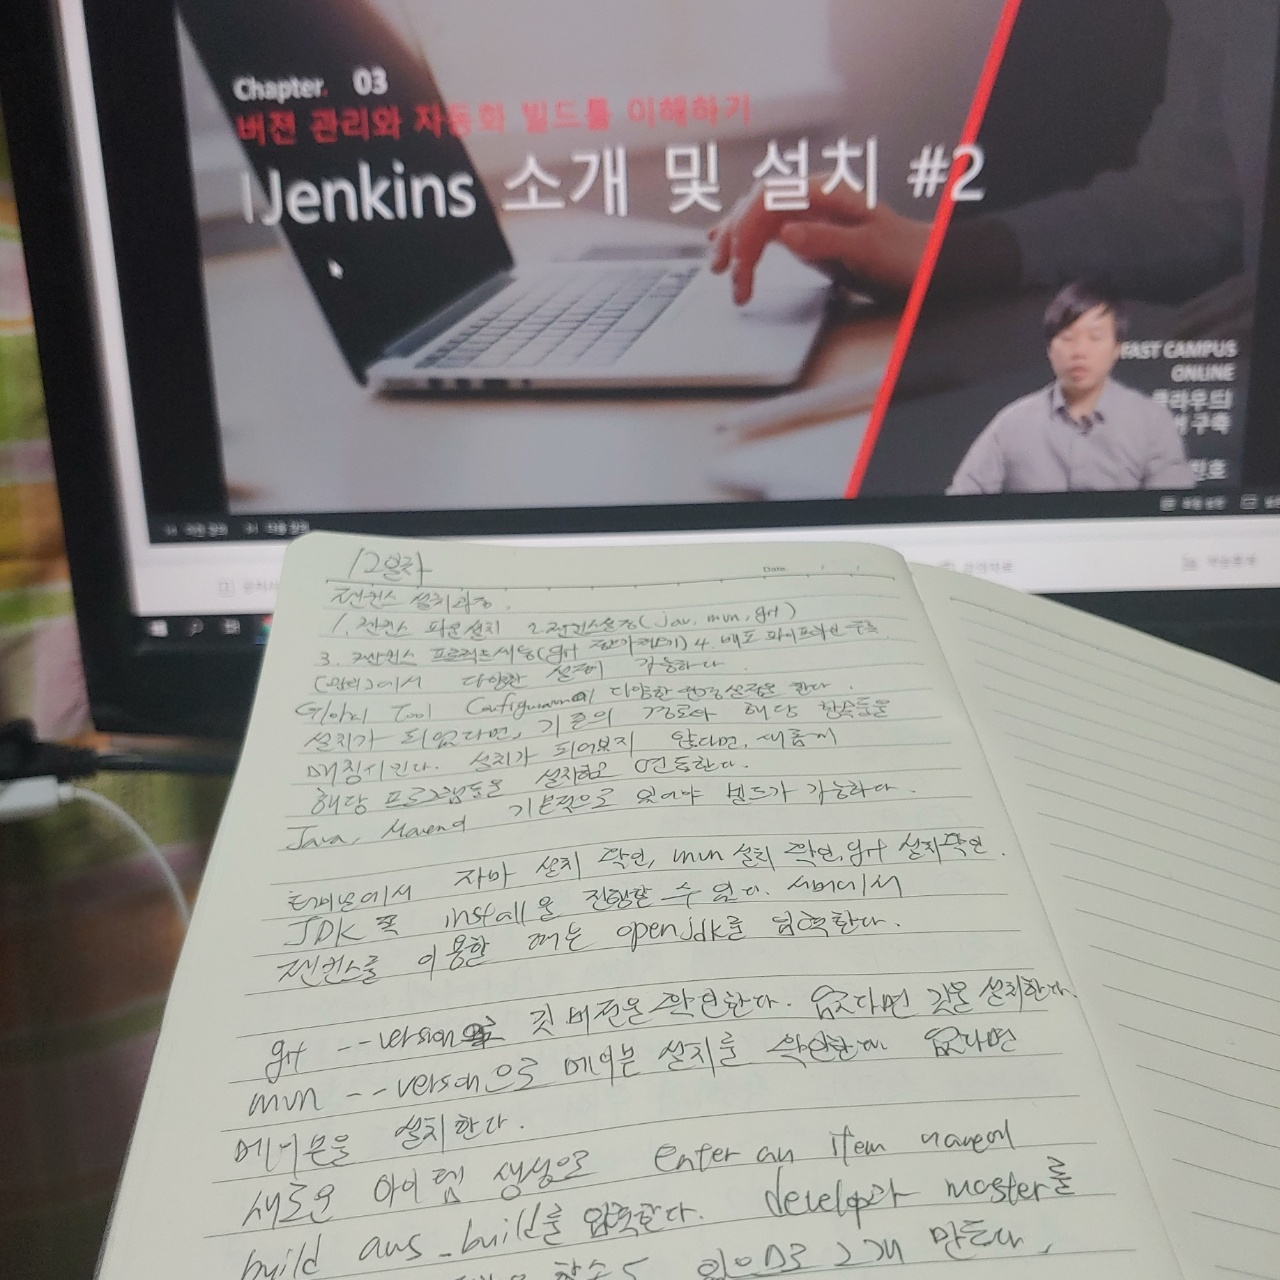 Chapter. 03
버전 관리와 자동화 빌드를 이해하기
Jenkins 소개 및 설치 #2
FAST CAMPUS
ONLINE
구축
12일차
Date
젠킨스 설치과정.
1. 젠킨스 다운 설치 2. 젠킨스설정(jav, mvn, git)
3. 젠킨스 프로젝트 (git 4. 배포 파이프라인
에서 다양한 설정이 가능하다.
Global Tool 다양한 환경설정을 한다.
설치가 되었다면, 기존의 경로와 해당 항목들을
매칭시킨다. 설치가 되어보지 않다면, 새롭게
해당 프로그램들을 설치하고 연동한다.
Java, Maven이 기본적으로 있어야 빌드가 가능하다.
터미널에서 자바 설치 확인, mvn 설치 확인, git 설치확인.
JDK install을 진행할 수 있다. 서버에서
젠킨스를 이용할 때는 openjdk를 입력한다.
git --version 깃 버전을 확인한다. 없다면 깃을 설치한다.
mvn --version으로 메이븐 설치를 없다면
메이븐을 설치한다.
새로운 아이템 생성으로 enter an item name에
build aws_build를 입력한다. develop과 master를
있으므로 2개 만든다.